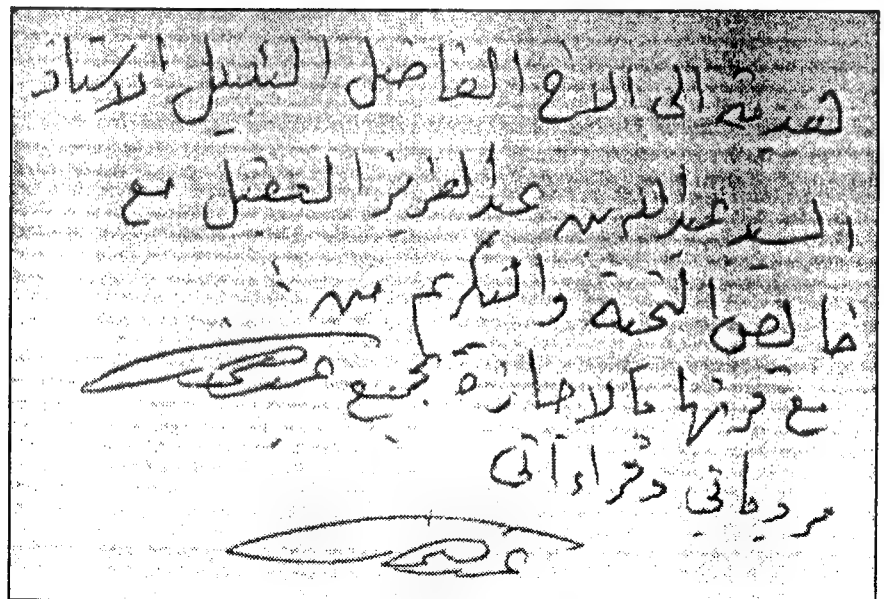 هدية الى الاخ الفاضل النبيل الاستاذ
السيد عبدالله بن عبدالعزيز العقيل مع
خالص التحية والتكريم من
مع قرنها بالاجازة بجميع
مروياتي وقراءاتي